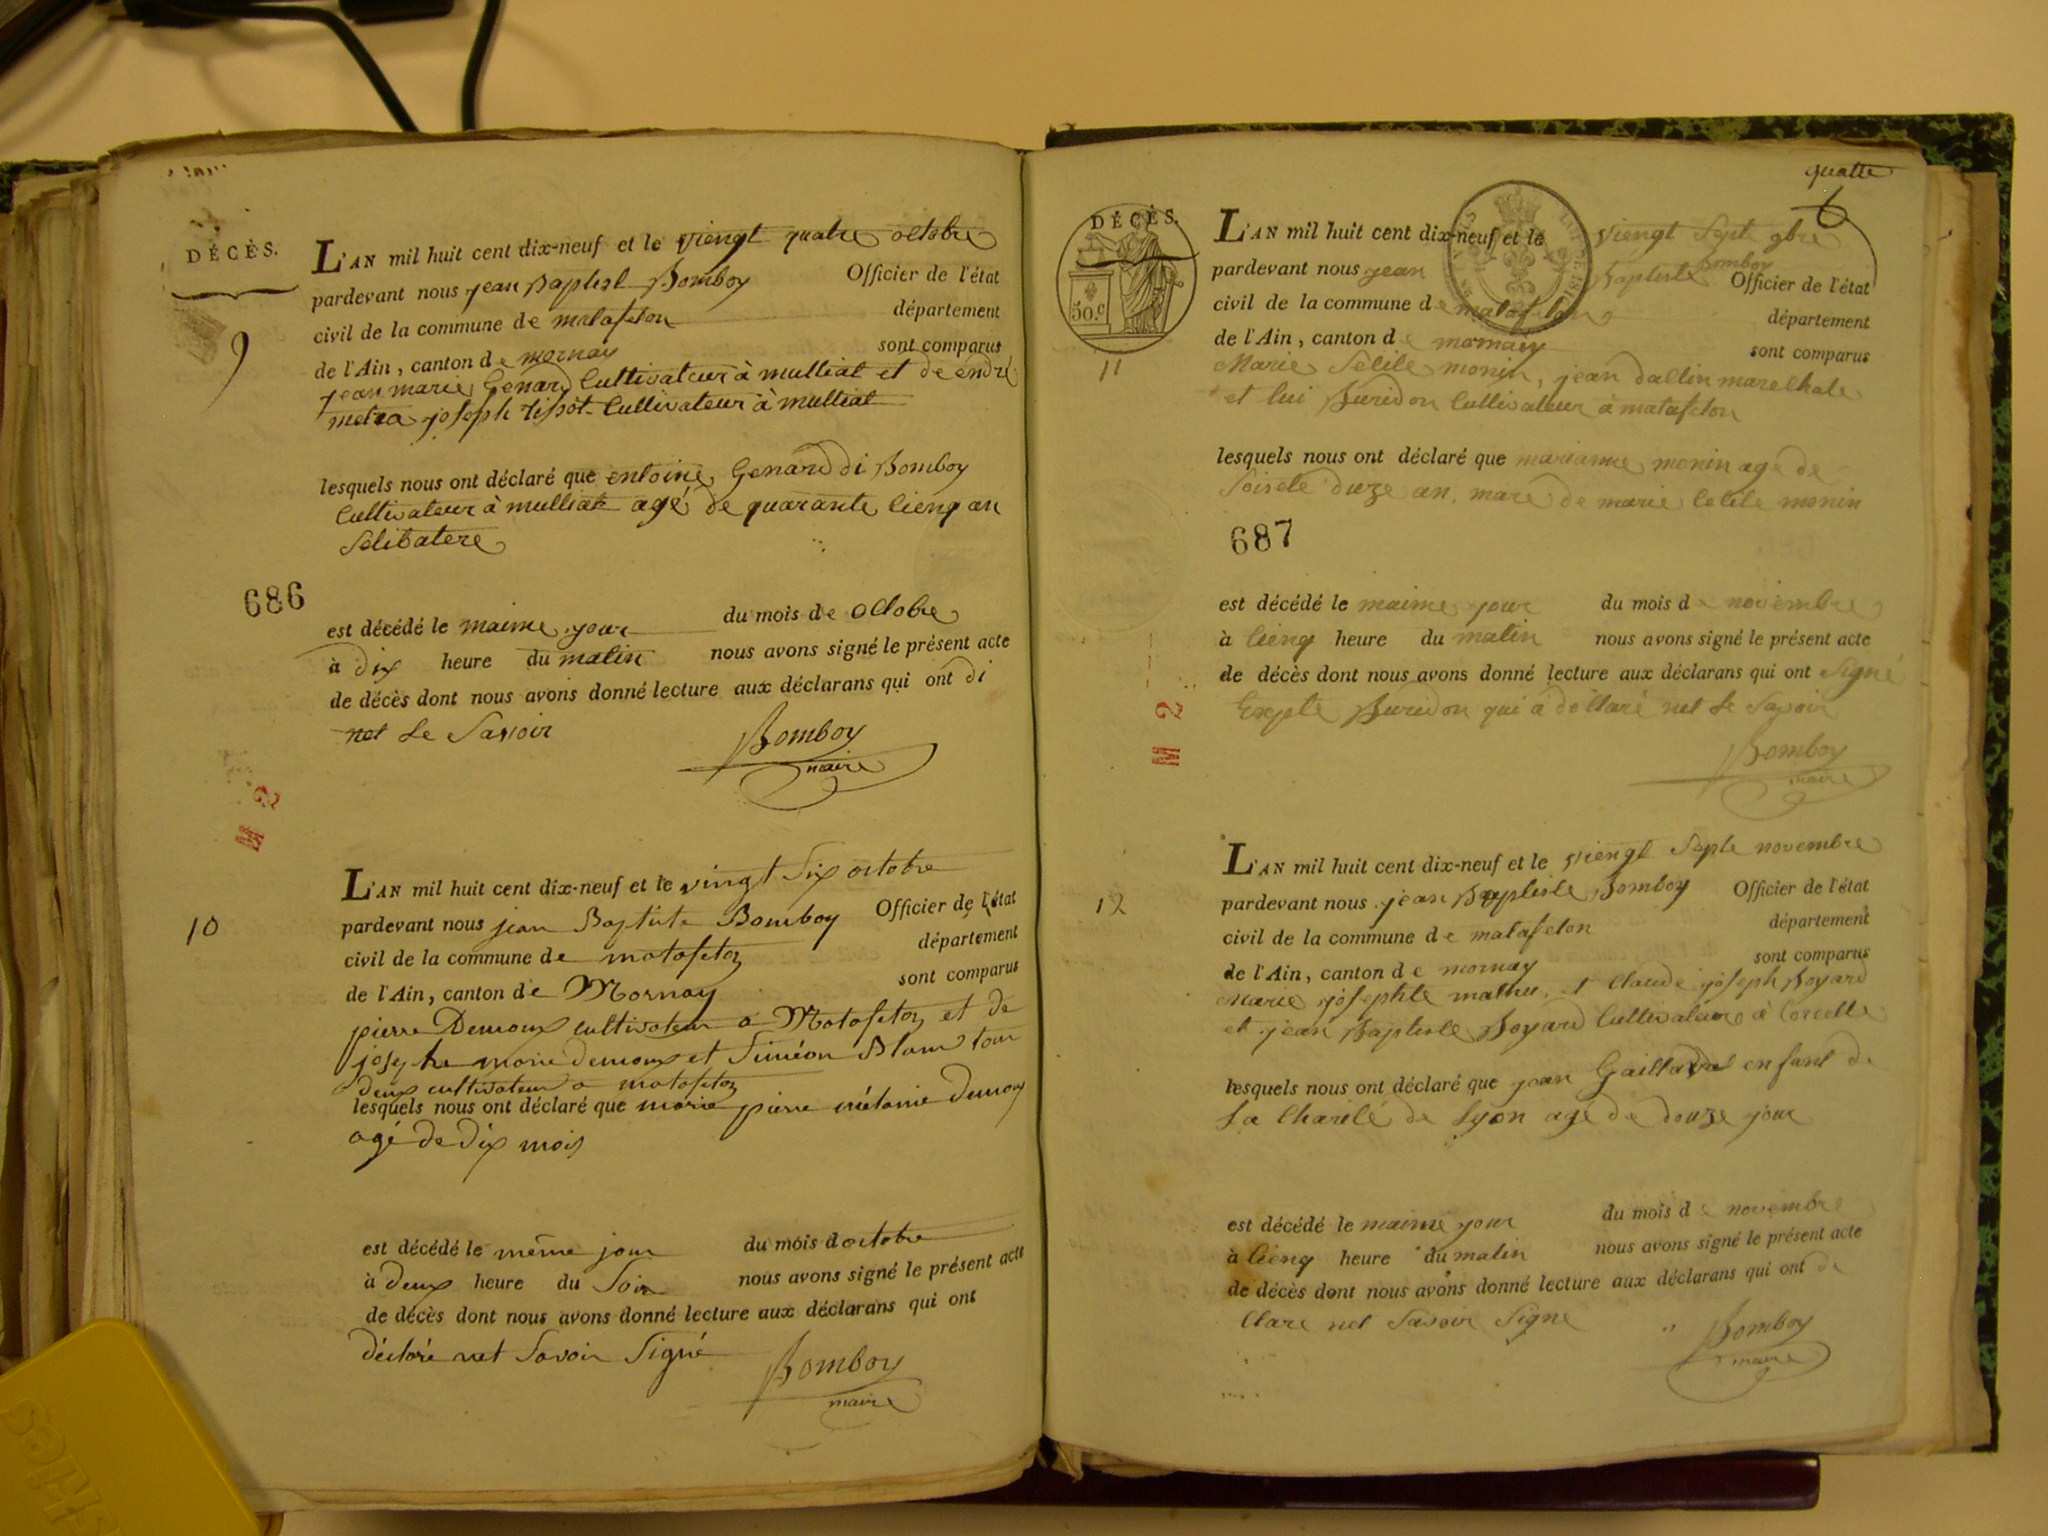 DÉCÈS.
9
L'AN mil huit cent dix-neuf et le viengt quatre octobre
pardevant nous jean Baptist Bomboy Officier de l'état
civil de la commune de matafelon département
de l'Ain, canton de mornay sont comparus
jean marie Genard Cultivateur à mulliat et de endré
metra joseph tissot Cultivateur à mulliat
lesquels nous ont déclaré que entoine Genard di Bomboy
Cultivateur à mulliat agé de quarante cienq an
Selibatere
686
est décédé le maime jour du mois de octobre
à dix heure du matin nous avons signé le présent acte
de décès dont nous avons donné lecture aux déclarans qui ont di
net le Savoir
Bomboy
maire
M 2
10
L'AN mil huit cent dix-neuf et le vingt Six octobre
pardevant nous jean Baptiste Bomboy Officier de l'état
civil de la commune de matafelon département
de l'Ain, canton de Mornay sont comparus
pierre Demoux cultivateur a Matafelon et de
josephe marie demoux et Siméon Blanc tous
deux cultivateur a matafelon
lesquels nous ont déclaré que marie pierre mélanie Demoux
agé de dix mois
est décédé le même jour du mois d octobre
à deux heure du Soir nous avons signé le présent acte
de décès dont nous avons donné lecture aux déclarans qui ont
déclaré net Savoir Signé
Bomboy
maire
quatre
6
DÉCÈS.
50.c
11
L'AN mil huit cent dix-neuf et le viengt Sept 9bre
pardevant nous jean Baptiste Bomboy Officier de l'état
civil de la commune de matafelon département
de l'Ain, canton de mornay sont comparus
Marie Selile monin, jean dallin marelhale
et lui Buridon Cultivateur à matafelon
lesquels nous ont déclaré que marianne monin age de
Soisete duze an, mare de marie Celile monin
687
est décédé le maime jour du mois de novembre
à cienq heure du matin nous avons signé le présent acte
de décès dont nous avons donné lecture aux déclarans qui ont Signé
Exepte Buridon qui a déllaré net le Savoir
Bomboy
maire
M 2
12
L'AN mil huit cent dix-neuf et le viengt Septe novembre
pardevant nous jean Baptiste Bomboy Officier de l'état
civil de la commune de matafelon département
de l'Ain, canton de mornay sont comparus
Marie josephte mathu, et Claude joseph Boyard
et jean Baptiste Boyard Cultivateur à Corcelle
lesquels nous ont déclaré que jean Gaillard enfant de
La Charité de Lyon age de douze jour
est décédé le maime jour du mois de novembre
à cienq heure du matin nous avons signé le présent acte
de décès dont nous avons donné lecture aux déclarans qui ont de
Clare net Savoir Signe
Bomboy
maire